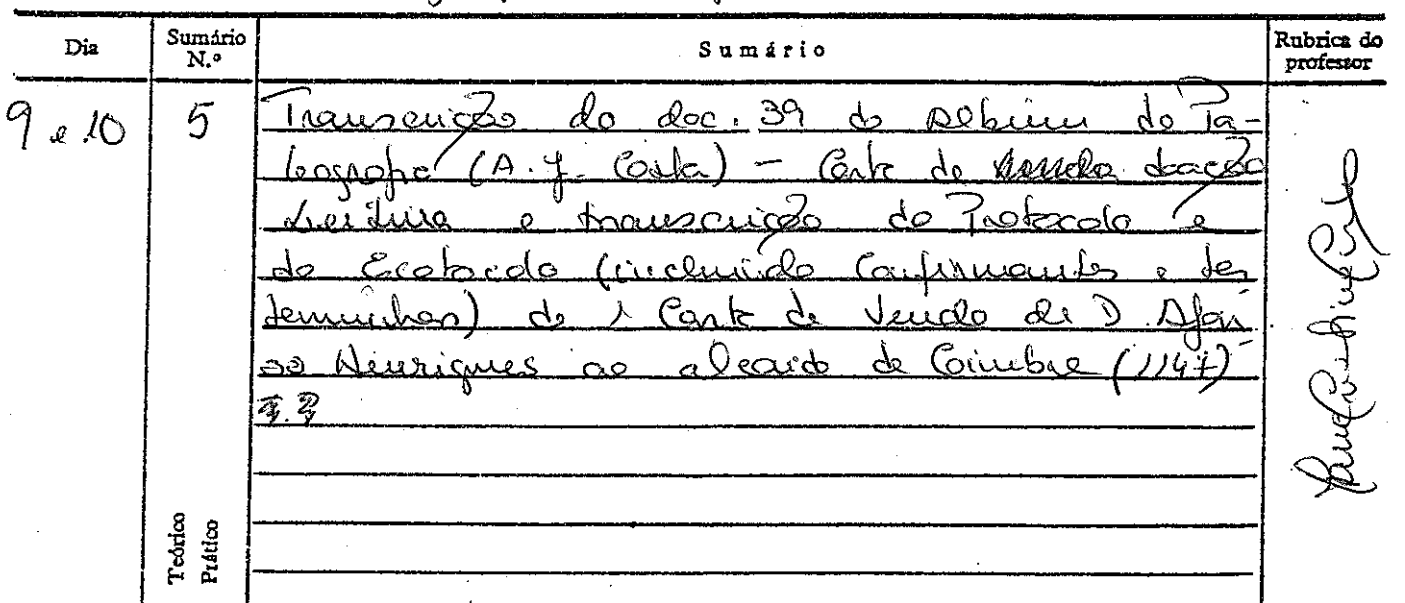 Dia
Sumário N.º
Sumário
Rubrica do professor
9 e 10
5
Transcrição do doc. 39 do Álbum de Pa-
leografia (A. J. Costa) – Carta de venda doação
Leitura e transcrição do Protocolo e
do Escatocolo (incluindo Confirmantes e tes
temunhas) de 1 Carta de Venda de D. Afon
so Henriques ao alcaide de Coimbra (1147)
Teórico
Prático